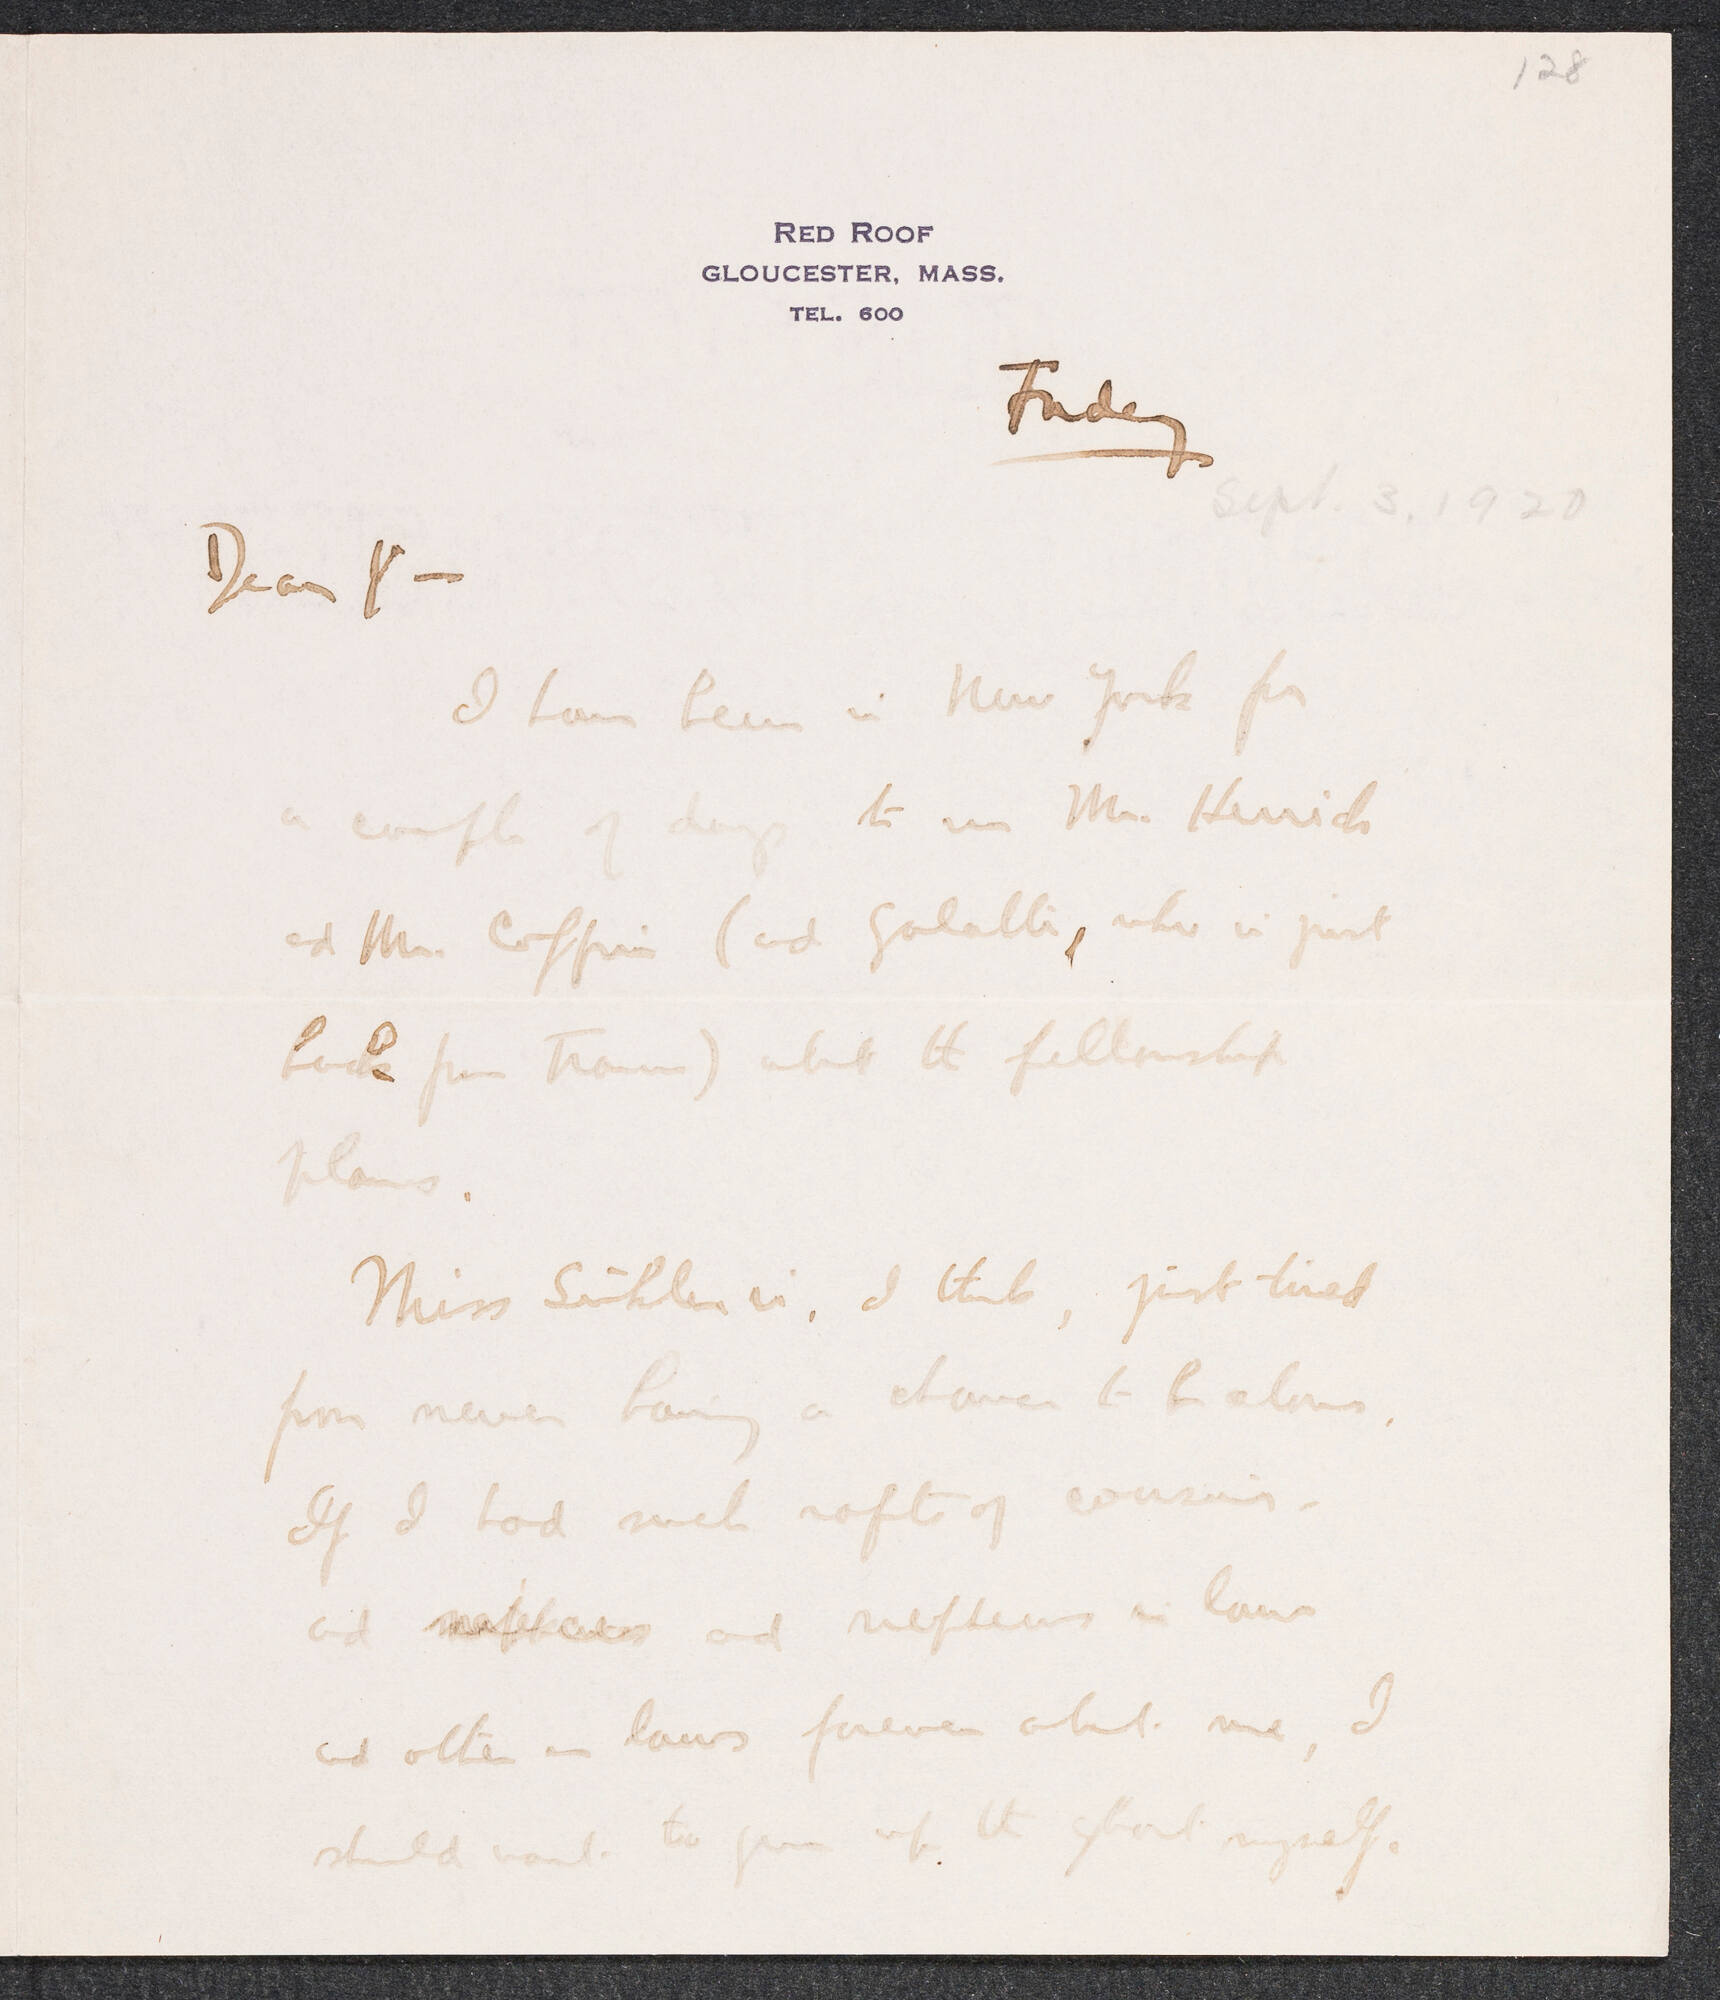 128
RED ROOF
GLOUCESTER, MASS.
TEL. 600
Friday
Sept. 3, 1920
Dear Y —
I have been in New York for
a couple of days to see Mr. Herrick
and Mr. Coffin (and Galatti, who is just
back from France) about the fellowship
plans.
Miss Sühler is, I think, just tired
from never having a chance to be alone.
If I had such rafts of cousins -
and nephews and nephews in law
and other in laws forever about me, I
should want to give up the ghost myself.